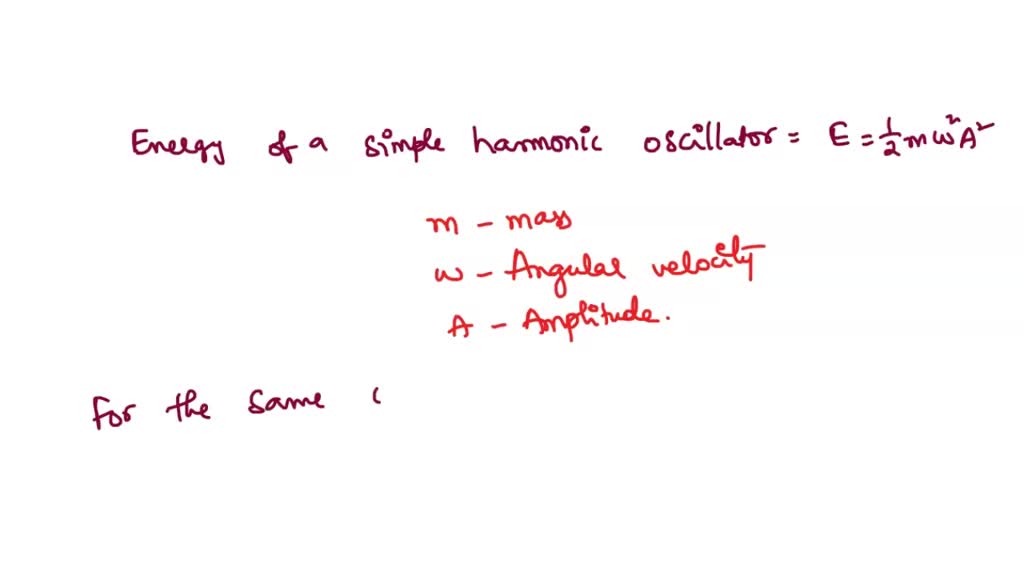 Energy of a simple harmonic oscillator = E = 1/2 m ω² A²
m - mass
ω - Angular velocity
A - Amplitude.
For the same